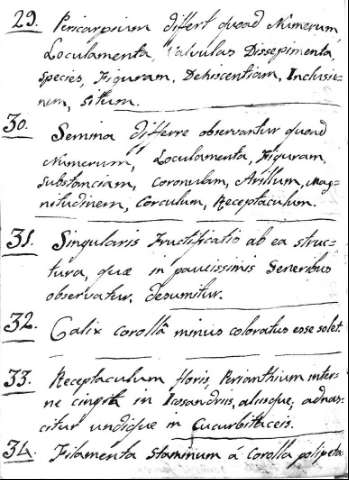 29. Pericarpium differt quoad Numerum
Loculamenta, Valvulas Dissepimenta,
Species, Figuram, Dehiscentiam, Inclusio-
nem, situm.
30. Semina differre observantur quoad
Numerum, Loculamenta, Figuram,
substantiam, Coronulam, Arillum, Mag-
nitudinem, Corculum, Receptaculum.
31. Singularis Fructificatio ab ea struc-
tura, quæ in paucissimis Generibus
observatur, desumitur.
32. Calix corollâ minus coloratus esse solet.
33. Receptaculum floris, Perianthium inter-
ne cingit in Icosandris, aliisque, adnas-
citur undique in Cucurbitaceis.
34. Filamenta Staminum á Corolla polipeta